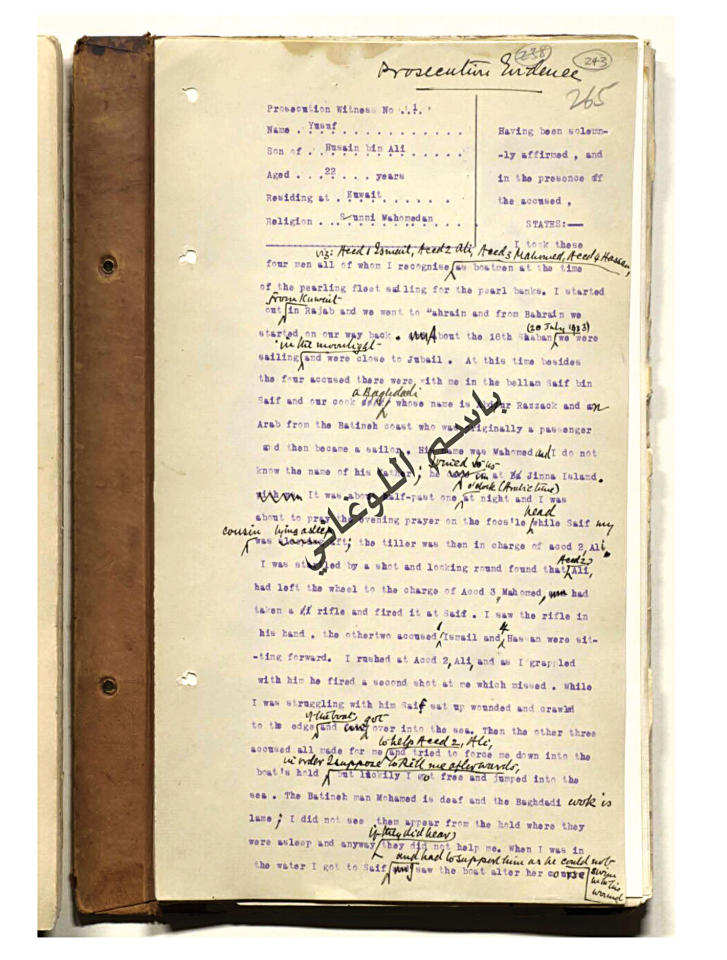 238 243
Prosecution Evidence
265
Prosecution Witness No . 1.
Name . Yusuf . . . . . . . . . . .
Son of . Husain bin Ali
Aged . . . 22 . . . years
Residing at . Kuwait . . . . . .
Religion . . Sunni Mahomedan
Having been solemn-
-ly affirmed , and
in the presence of
the accused ,
STATES:—
I took these
viz: Accd 1 Ismail, Accd 2 Ali, Accd 3 Mahomed, Accd 4 Hassan,
four men all of whom I recognise as boatmen at the time
of the pearling fleet sailing for the pearl banks. I started
from Kuwait
out in Rajab and we went to "ahrain and from Bahrain we
(20 July 1933)
started on our way back . About the 16th Shaban we were
in the moonlight
sailing and were close to Jubail . At this time besides
the four accused there were with me in the bellam Saif bin
a Baghdadi
Saif and our cook whose name is Abdur Razzack and an
Arab from the Batineh coast who was originally a passenger
and then became a sailor. His name was Mahomed and I do not
joined us
know the name of his father ; he in at Jinna Island.
o'clock (Arabic time)
It was about half-past one at night and I was
head
about to pray the evening prayer on the focs'le while Saif my
cousin lying asleep
was aft; the tiller was then in charge of accd 2, Ali.
Accd 2
I was startled by a shot and looking round found that Ali,
had left the wheel to the charge of Accd 3, Mahomed, had
taken a rifle and fired it at Saif . I saw the rifle in
1 4
his hand . the othertwo accused Ismail and Hassan were sit-
-ting forward. I rushed at Accd 2, Ali, and as I grappled
with him he fired a second shot at me which missed . While
I was struggling with him Saif sat up wounded and crawled
of the boat, got
to the edge and over into the sea. Then the other three
to help Accd 2, Ali,
accused all made for me and tried to force me down into the
in order I suppose to kill me afterwards,
boat's hold but luckily I got free and jumped into the
sea . The Batineh man Mohamed is deaf and the Baghdadi cook is
lame ; I did not see them appear from the hold where they
if they did hear
were asleep and anyway they did not help me. When I was in
and had to support him as he could not
swim
with his
wound
the water I got to Saif saw the boat alter her course
باسم اللوغاني